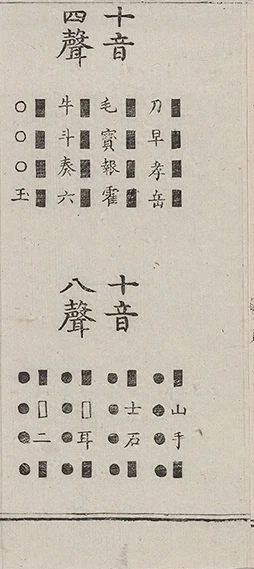 十音
四聲
■■■■
刀早孝岳
■■■■
毛寳報霍
■■■■
牛斗奏六
■■■■
○○○玉
十音
八聲
■山手■
●●●●
■士石■
●●●●
■□耳■
●●●●
■□二■
●●●●